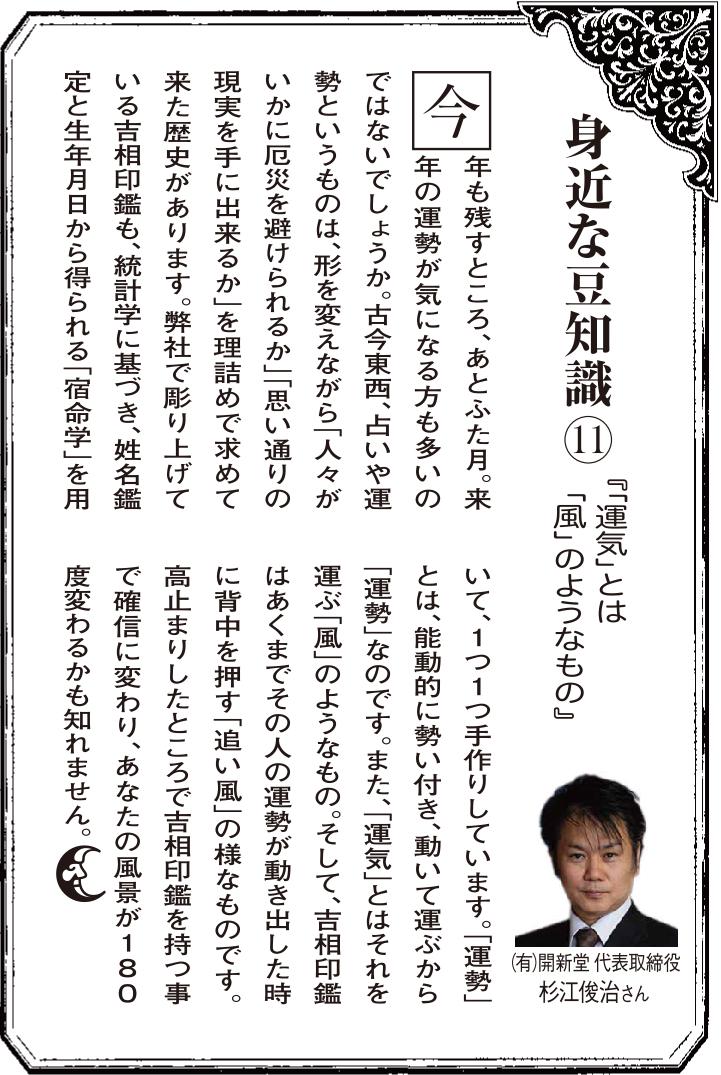 身近な豆知識⑪
『「運気」とは
「風」のようなもの』
今年も残すところ、あとふた月。来
年の運勢が気になる方も多いの
ではないでしょうか。古今東西、占いや運
勢というものは、形を変えながら「人々が
いかに厄災を避けられるか」「思い通りの
現実を手に出来るか」を理詰めで求めて
来た歴史があります。弊社で彫り上げて
いる吉相印鑑も、統計学に基づき、姓名鑑
定と生年月日から得られる「宿命学」を用
いて、1つ1つ手作りしています。「運勢」
とは、能動的に勢い付き、動いて運ぶから
「運勢」なのです。また、「運気」とはそれを
運ぶ「風」のようなもの。そして、吉相印鑑
はあくまでその人の運勢が動き出した時
に背中を押す「追い風」の様なものです。
高止まりしたところで吉相印鑑を持つ事
で確信に変わり、あなたの風景が180
度変わるかも知れません。
㈲開新堂 代表取締役
杉江俊治さん